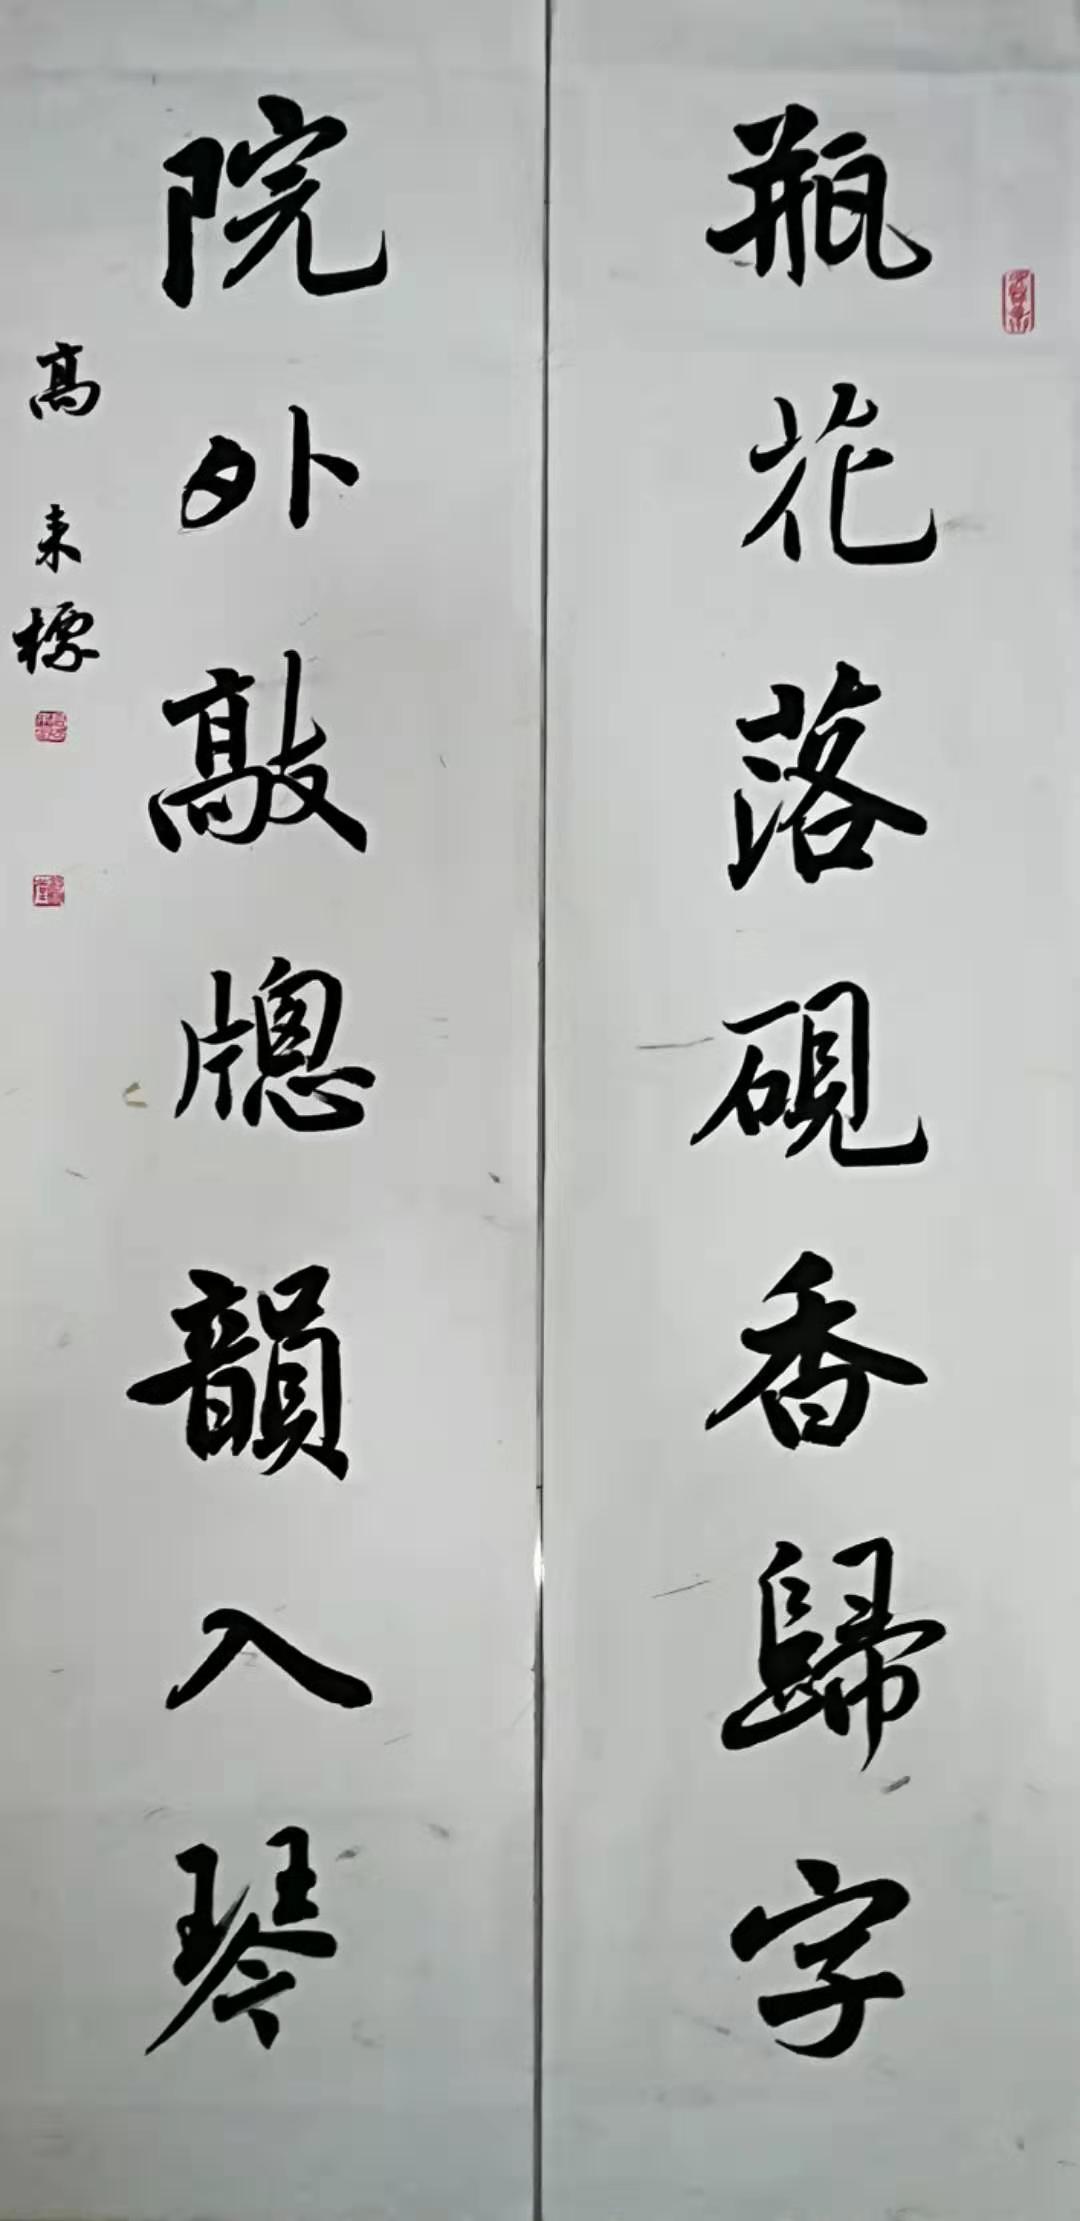 瓶花落硯香歸字
院外敲牕韻入琴
高来檺